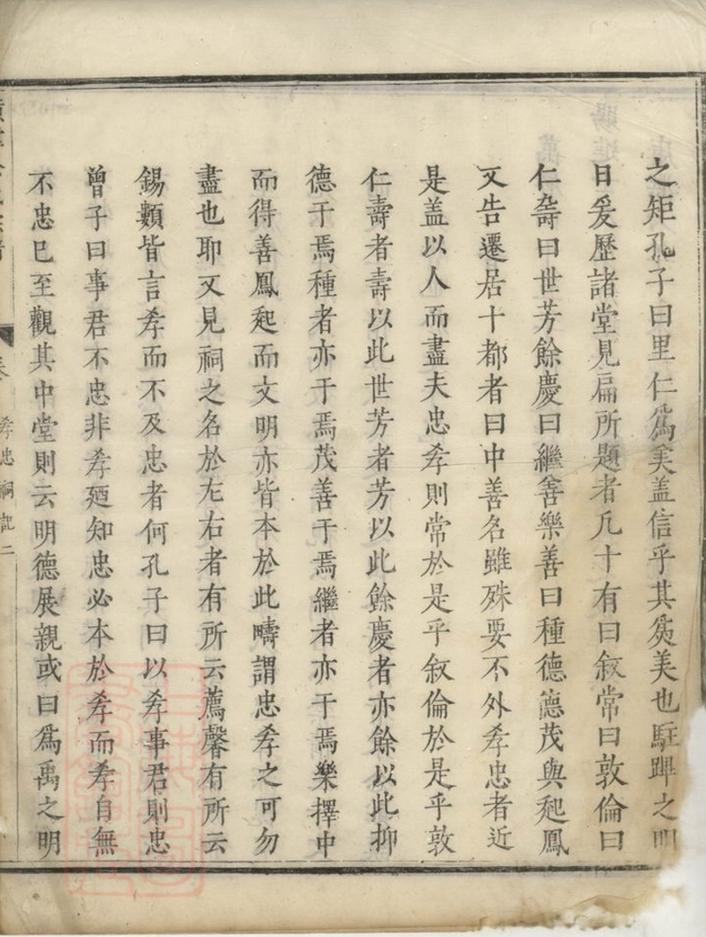 之矩孔子曰里仁爲美盖信乎其爲美也駐蹕之明
日爰歷諸堂見扁所題者凢十有曰敘常曰敦倫曰
仁壽曰世芳餘慶曰繼善樂善曰種德德茂與起鳳
又告遷居十都者曰中善名雖殊要不外孝忠者近
是盖以人而盡夫忠孝則常於是乎敘倫於是乎敦
仁壽者壽以此世芳者芳以此餘慶者亦餘以此抑
德于焉種者亦于焉茂善于焉繼者亦于焉樂擇中
而得善鳳起而文明亦皆本於此疇謂忠孝之可勿
盡也耶又見祠之名於左右者有所云薦馨有所云
錫纇皆言孝而不及忠者何孔子曰以孝事君則忠
曾子曰事君不忠非孝廼知忠必本於孝而孝自無
不忠巳至觀其中堂則云明德展親或曰爲禹之明
孝忠祠記二